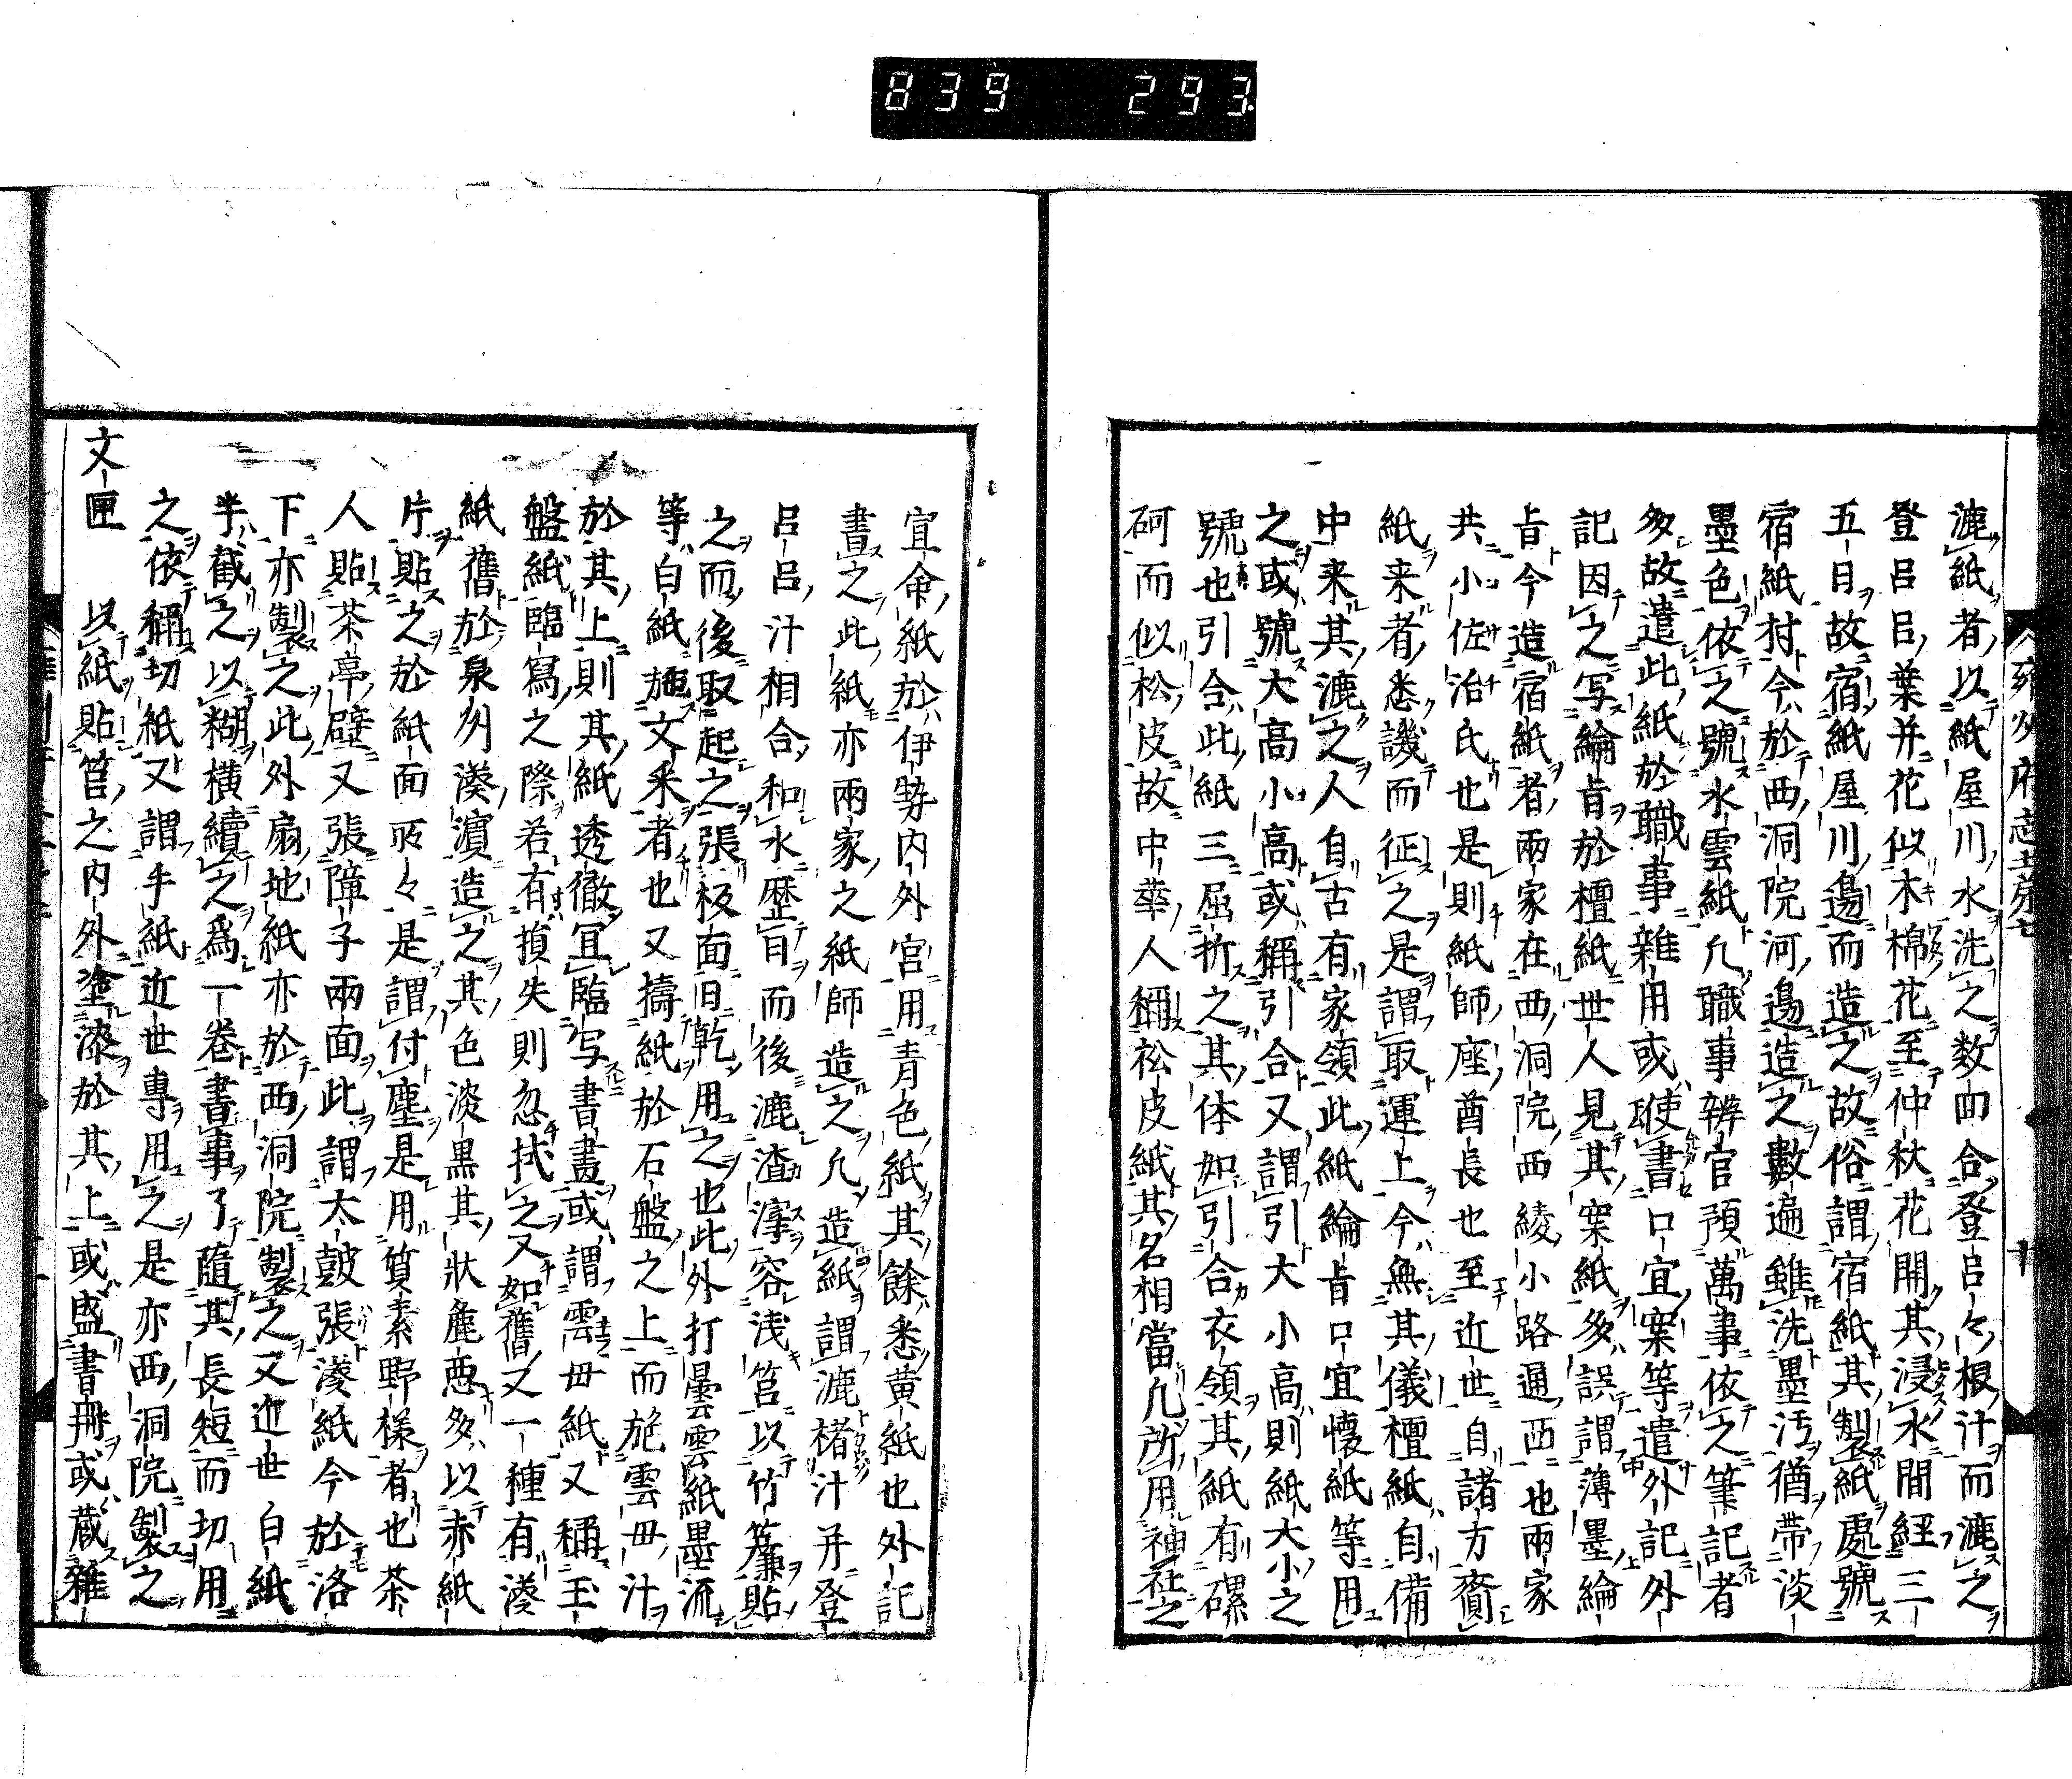 839 293
漉紙者以紙屋川水洗之数囬合登呂々根汁而漉之
登呂呂葉并花似木棉花至仲秋花開其浸水間經三
五日故宿紙屋川邊而造之故俗謂宿紙其製紙處號
宿紙村今於西洞院河邊造之數遍雖洗墨汚猶帶淡
墨色依之號水雲紙凡職事辨官預萬事依之筆記者
多故遣此紙於職事雜用或使書口宣案等遣外記外
記因之写綸旨於檀紙世人見其案紙多誤謂薄墨綸
旨今造宿紙者兩家在西洞院西綾小路通西也兩家
共小佐治氏也是則紙師座酋長也至近世自諸方賷
紙来者悉譏而征之是謂取運上今無其儀檀紙自備
中来其漉之人自古有家領此紙綸旨口宣懷紙等用
之或號大高小高或稱引合又謂引大小高則紙大小之
號也引合此紙三屈折之其体如引合衣領其紙有磥
砢而似松皮故中華人稱松皮紙其名相當凡所用神社之
宣命紙於伊勢内外宮用青色紙其餘悉黄紙也外記
書之此紙亦兩家之紙師造之凡造紙謂漉楮汁并登
呂呂汁相合和水歷日而後漉渣滓容浅筥以竹簾貼
之而後取起之張板面日乾用之也此外打曇雲紙墨流
等白紙施文釆者也又擣紙於石盤之上而施雲毋汁
於其上則其紙透徹冝臨写書畫或謂雲毋紙又稱玉
盤紙臨寫之際若有損失則忽拭之又如舊又一種有湊
紙舊於泉州湊濵造之其色淡黒其狀麁悪多以赤紙
片貼之於紙面所々是謂付塵是用質素野様者也茶
人貼茶亭壁又張障子兩面此謂太皷張湊紙今於洛
下亦製之此外扇地紙亦於西洞院製之又近世白紙
半截之以糊橫續之爲一卷書事了隨其長短而切用
之依稱切紙又謂手紙近世專用之是亦西洞院製之
文匣　以紙貼筥之内外塗漆於其上或盛書冊或蔵雜